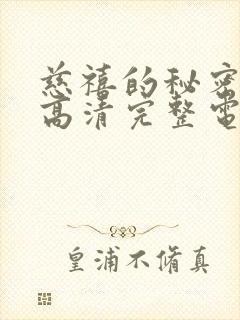 慈禧的秘密
高清完整電
皇浦不脩真